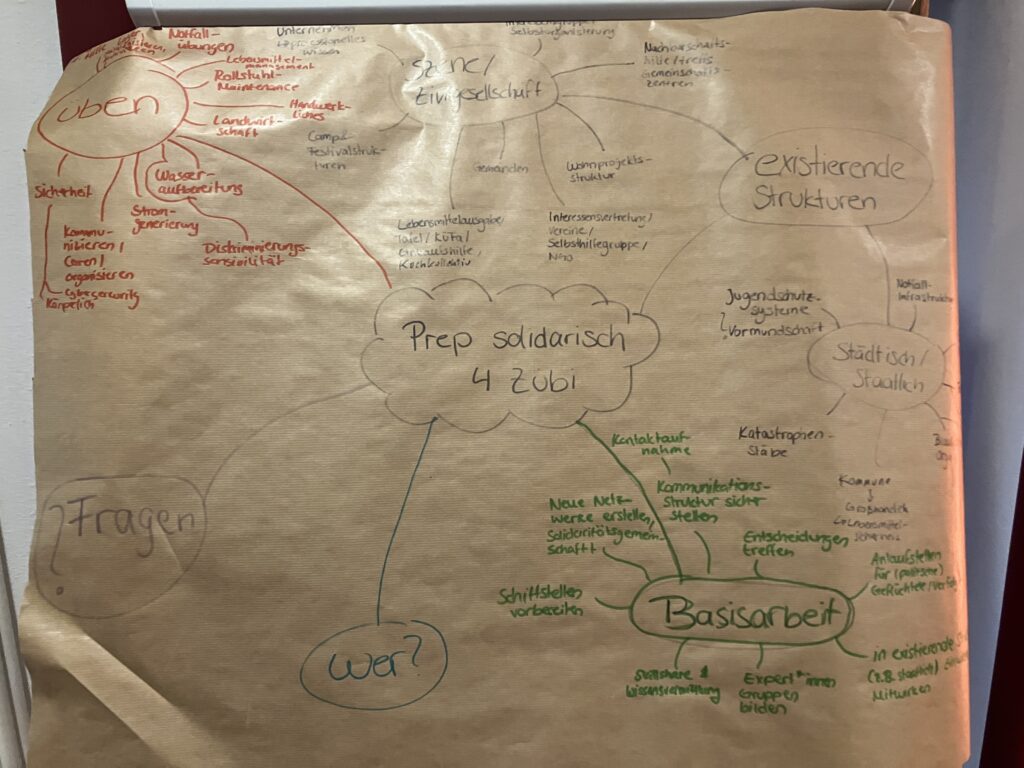 Notfall-
übungen
Lebensmittel-
management
Rollstuhl-
Maintenance
Handwerk-
liches
Landwirt-
schaft
üben
Wasser-
aufbereitung
Sicherheit
Strom-
generierung
Diskriminierungs-
sensibilität
Kommu-
nizieren/
Caren/
organisieren
Cybersecurity
Körperlich
Unternehmen
professionelles
wissen
Selbstorganisierung
Szene/
Zivilgesellschaft
Nachbarschafts-
hilfe/treffs
Gemeinschafts-
zentren
Camp&
Festivalstruk-
turen
Gemeinden
Wohnprojekts-
struktur
Lebensmittelausgabe/
Tafel/KüFa/
Kochkollektiv
Interessensvertretung/
Vereine/
Selbsthilfegruppe/
NGO
existierende
Strukturen
Jugendschutz-
systeme
? Vormundschaft
Notfall-
infrastruktur
Städtisch/
Staatlich
Katastrophen-
stäbe
Kommune
Prep solidarisch
4 Zübi
? Fragen
Wer?
Kontaktauf-
nahme
Kommunikations-
struktur sicher
stellen
Neue Netz-
werke erstellen,
Solidaritätsgemein-
schaft
Entscheidungen
treffen
Anlaufstellen
für (politische)
Geflüchtete/
Schlafstellen
vorbereiten
Basisarbeit
Skillshare &
Wissensvermittlung
Expert*innen
Gruppen
bilden
in existierende
(z.B. staatlich)
Mitwirken